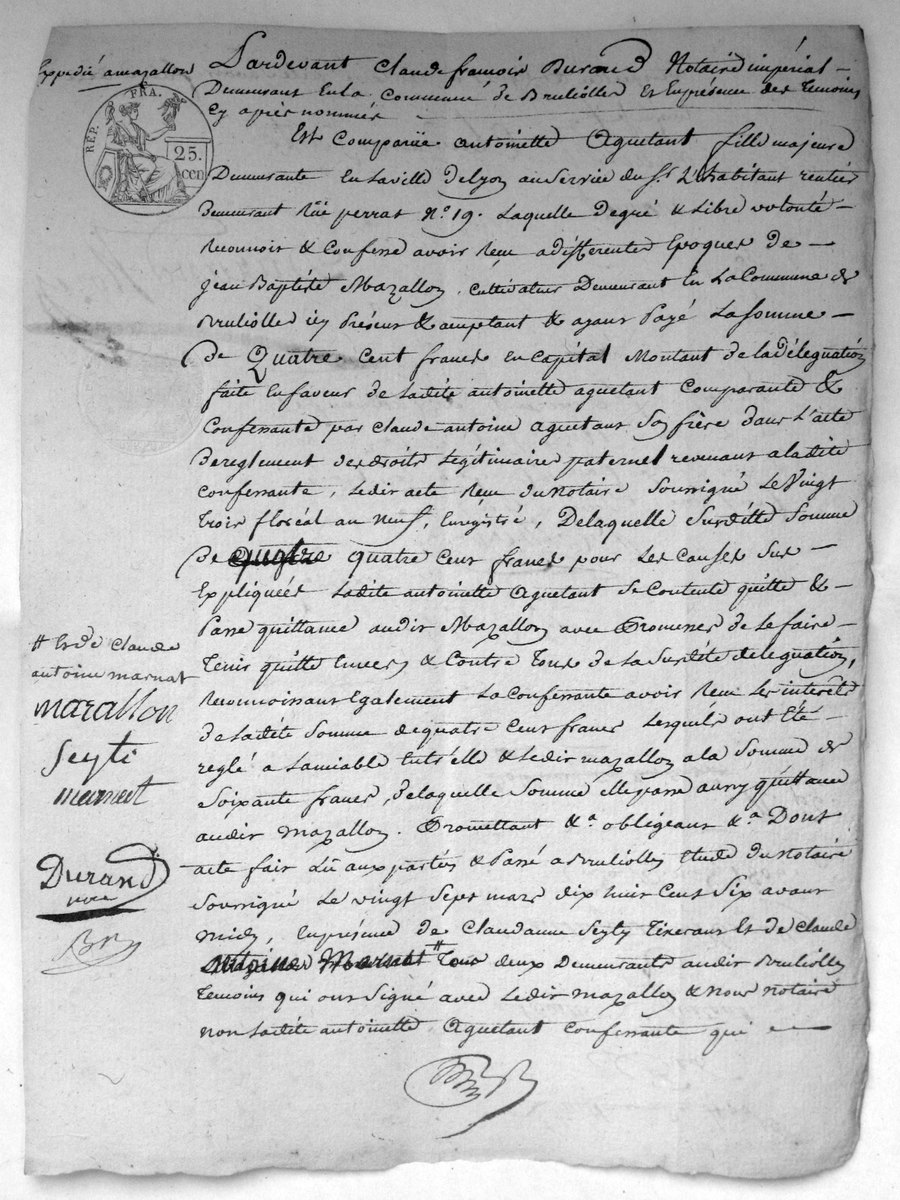 Expedié a mazallon
REP. FRA.
25.
cen
Pardevant Claude françois Durand Notaire impérial
Demeurant En la Commune de Bruliolles et En présence des Temoins
Cy après nommés
Est Comparüe antoinette Aguetant fille majeure
Demeurante En la ville de Lyon au Service du Sr. L'habitant rentier
Demeurant Rüe perrat No. 19. Laquelle de gré & Libre volonté
Reconnoit & Confesse avoir Reçu a differente Epoques de
jean Baptiste Mazallon, cultivateur Demeurant En La Commune de
Bruliolles icy Présent & aceptant & ayant Payé La somme
de Quatre Cent francs En Capital Montant de la délégation
faite En faveur de Ladite antoinette aguetant Comparante &
Confessante par Claude antoine aguetant Son frère dans L'acte
De reglement des droits Légitimaire paternel revenant a ladite
Confessante, Ledit acte Reçu du Notaire Soussigné Le Vingt
trois floréal an neuf, Enregistré, De laquelle Susditte Somme
de quatre quatre Cent francs pour Les Causes Sus
Expliquées Ladite antoinette Aguetant Se Contente quitte &
Passe quittance audit Mazallon avec Promesse de Le faire
Tenir quitte Envers & Contre Tous de La Susdite délégation,
Reconnoissant Egalement La Confessante avoir Reçu Les intérêts
de Ladite Somme de quatre Cent francs Lesquels ont Été
reglé a Lamiable Entr'elle & Ledit mazallon a la Somme de
Soixante francs, de laquelle Somme elle passe aussy quittance
audit mazallon. Promettant &a. obligeant &a. Dont
acte fait Lü aux parties & Passé a Bruliolles Etude du Notaire
Soussigné Le vingt Sept mars dix huit Cent Six avant
midy, En présence de Claudanne Seyty Tixerant Et de Claude
antoine Marnat # Tous deux Demeurants audit Bruliolles
Temoins qui ont Signé avec Ledit mazallon & Nous notaire
non Ladite antoinette Aguetant Confessante qui
# Et de Claude
antoine marnat
mazallon
Seyti
marnat
Durand
nore